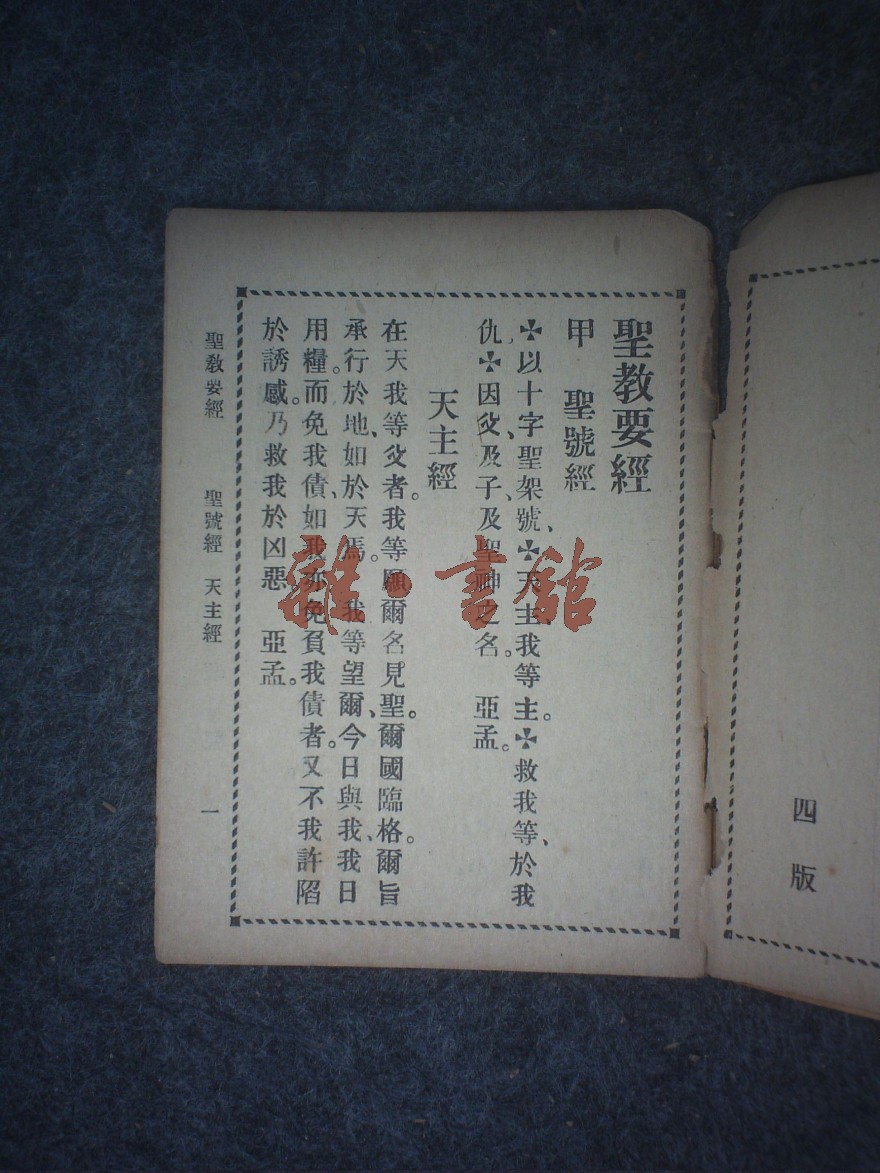 四版
聖教要經
甲　聖號經
✠以十字聖架號、✠天主我等主。✠救我等、於我
仇✠因父、及子、及聖神之名。　亞孟。
天主經
在天我等父者。我等願爾名見聖。爾國臨格。爾旨
承行於地、如於天焉。我等望爾、今日與我、我日
用糧。而免我債、如我亦免負我債者。又不我許陷
於誘感。乃救我於凶惡。　亞孟。
聖教要經　聖號經　天主經　一
雜·書館